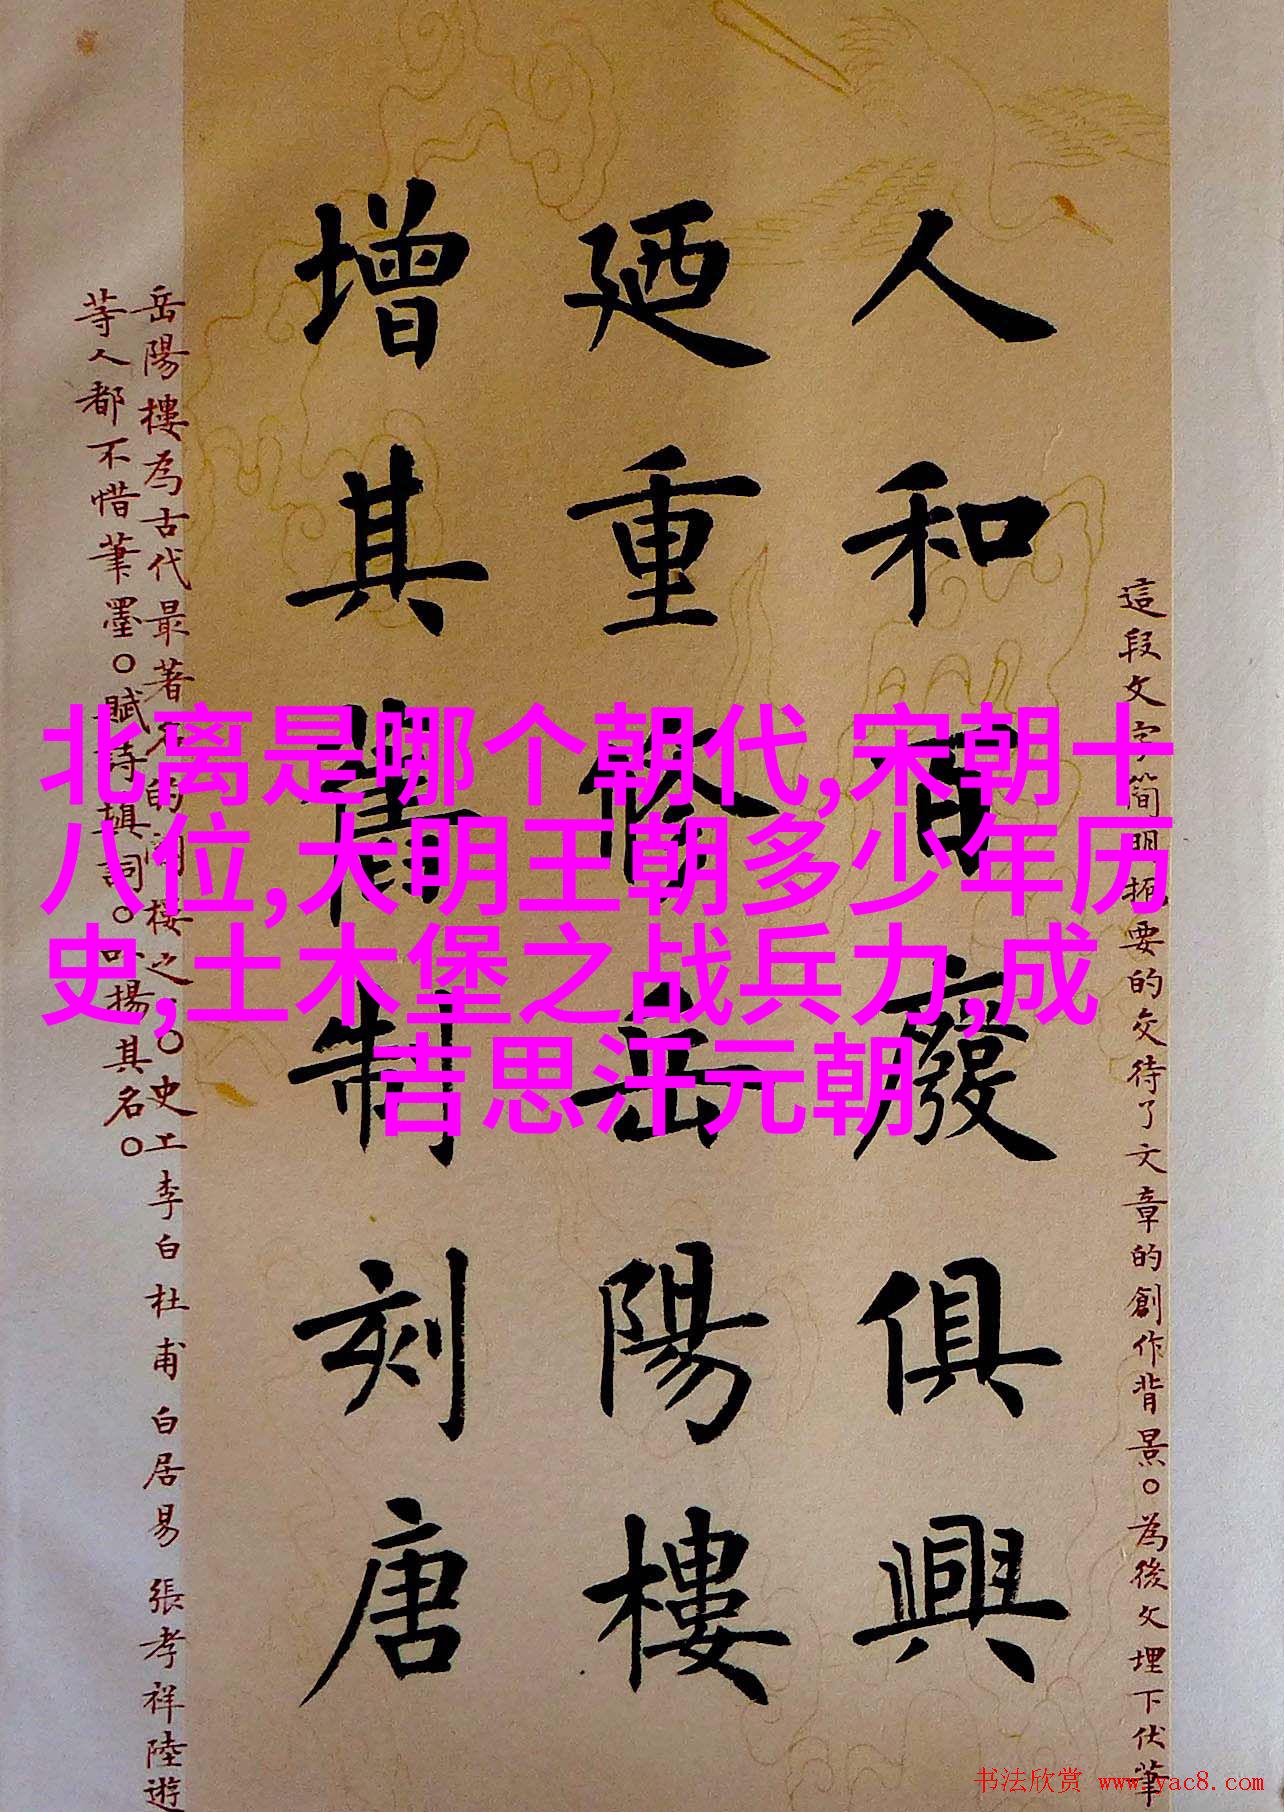 北离是哪个朝代,宋朝十
八位,大明王朝多少年历
史,土木堡之战兵力,成
吉思汗元朝
這段文字簡明扼要的交待了文章的創作背景。為後文埋下伏筆
人和百廢俱興
廼重修岳陽樓
增其舊制刻唐
岳陽樓為古代最著名的閣樓之一。史上李白杜甫白居易張孝祥陸遊
等人都不惜筆墨。賦詩填詞。揚其名。
书法欣赏 www.yac8.com